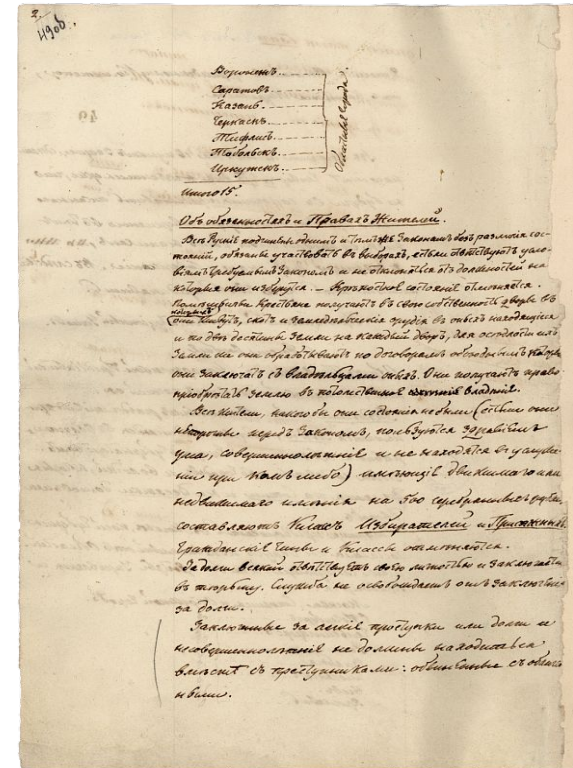 2.
490б.
Воронежъ
Саратовъ
Казань
Черкаскъ
Тифлисъ
Тобольскъ
Иркутскъ
Областные города.
Итого 15.
Объ обязанностяхъ и Правахъ Жителей.
Всѣ Рускіе подчинены однимъ и тѣмъ же Законамъ безъ различія сос-
тояній, обязаны участвовать въ выборахъ, если отвѣтствуютъ усло-
віямъ требуемымъ Закономъ и не отклоняться отъ должностей на
которыя они изберутся. – Крѣпостное состояніе отмѣняется.
Помѣщичьи Крестьяне получаютъ въ свою собственность дворы въ
которыхъ
они живутъ, скотъ и земледѣльческія орудія въ оныхъ находящіяся
и по двѣ десятины земли на каждый дворъ, для осѣдлости ихъ
Земли же они обрабатываютъ по договорамъ обоюднымъ которые
они заключатъ съ владѣльцами оныхъ. Они получаютъ право
пріобрѣтать землю въ потомственное владѣніе.
Всѣ жители, какого бы они состоянія не были (если они
перед Закономъ, пользуются здравіемъ
ума, совершеннолѣтніе и не находятся въ услуже
ніи при комъ либо) имѣющіе движимаго или
недвижимаго имѣнія на 500 серебряныхъ рублей
составляютъ Классъ Избирателей и Присяжныхъ.
Гражданскіе Чины и Классы отмѣняются.
За долги всякій отвѣтствуетъ своею личностью и заключается
въ тюрьму. Служба не освобождаетъ отъ заключенія
за долги.
Заключенные за легкіе проступки или долги и
несовершеннолѣтніе не должны находиться
вмѣстѣ съ преступниками: обвиненные съ обвин